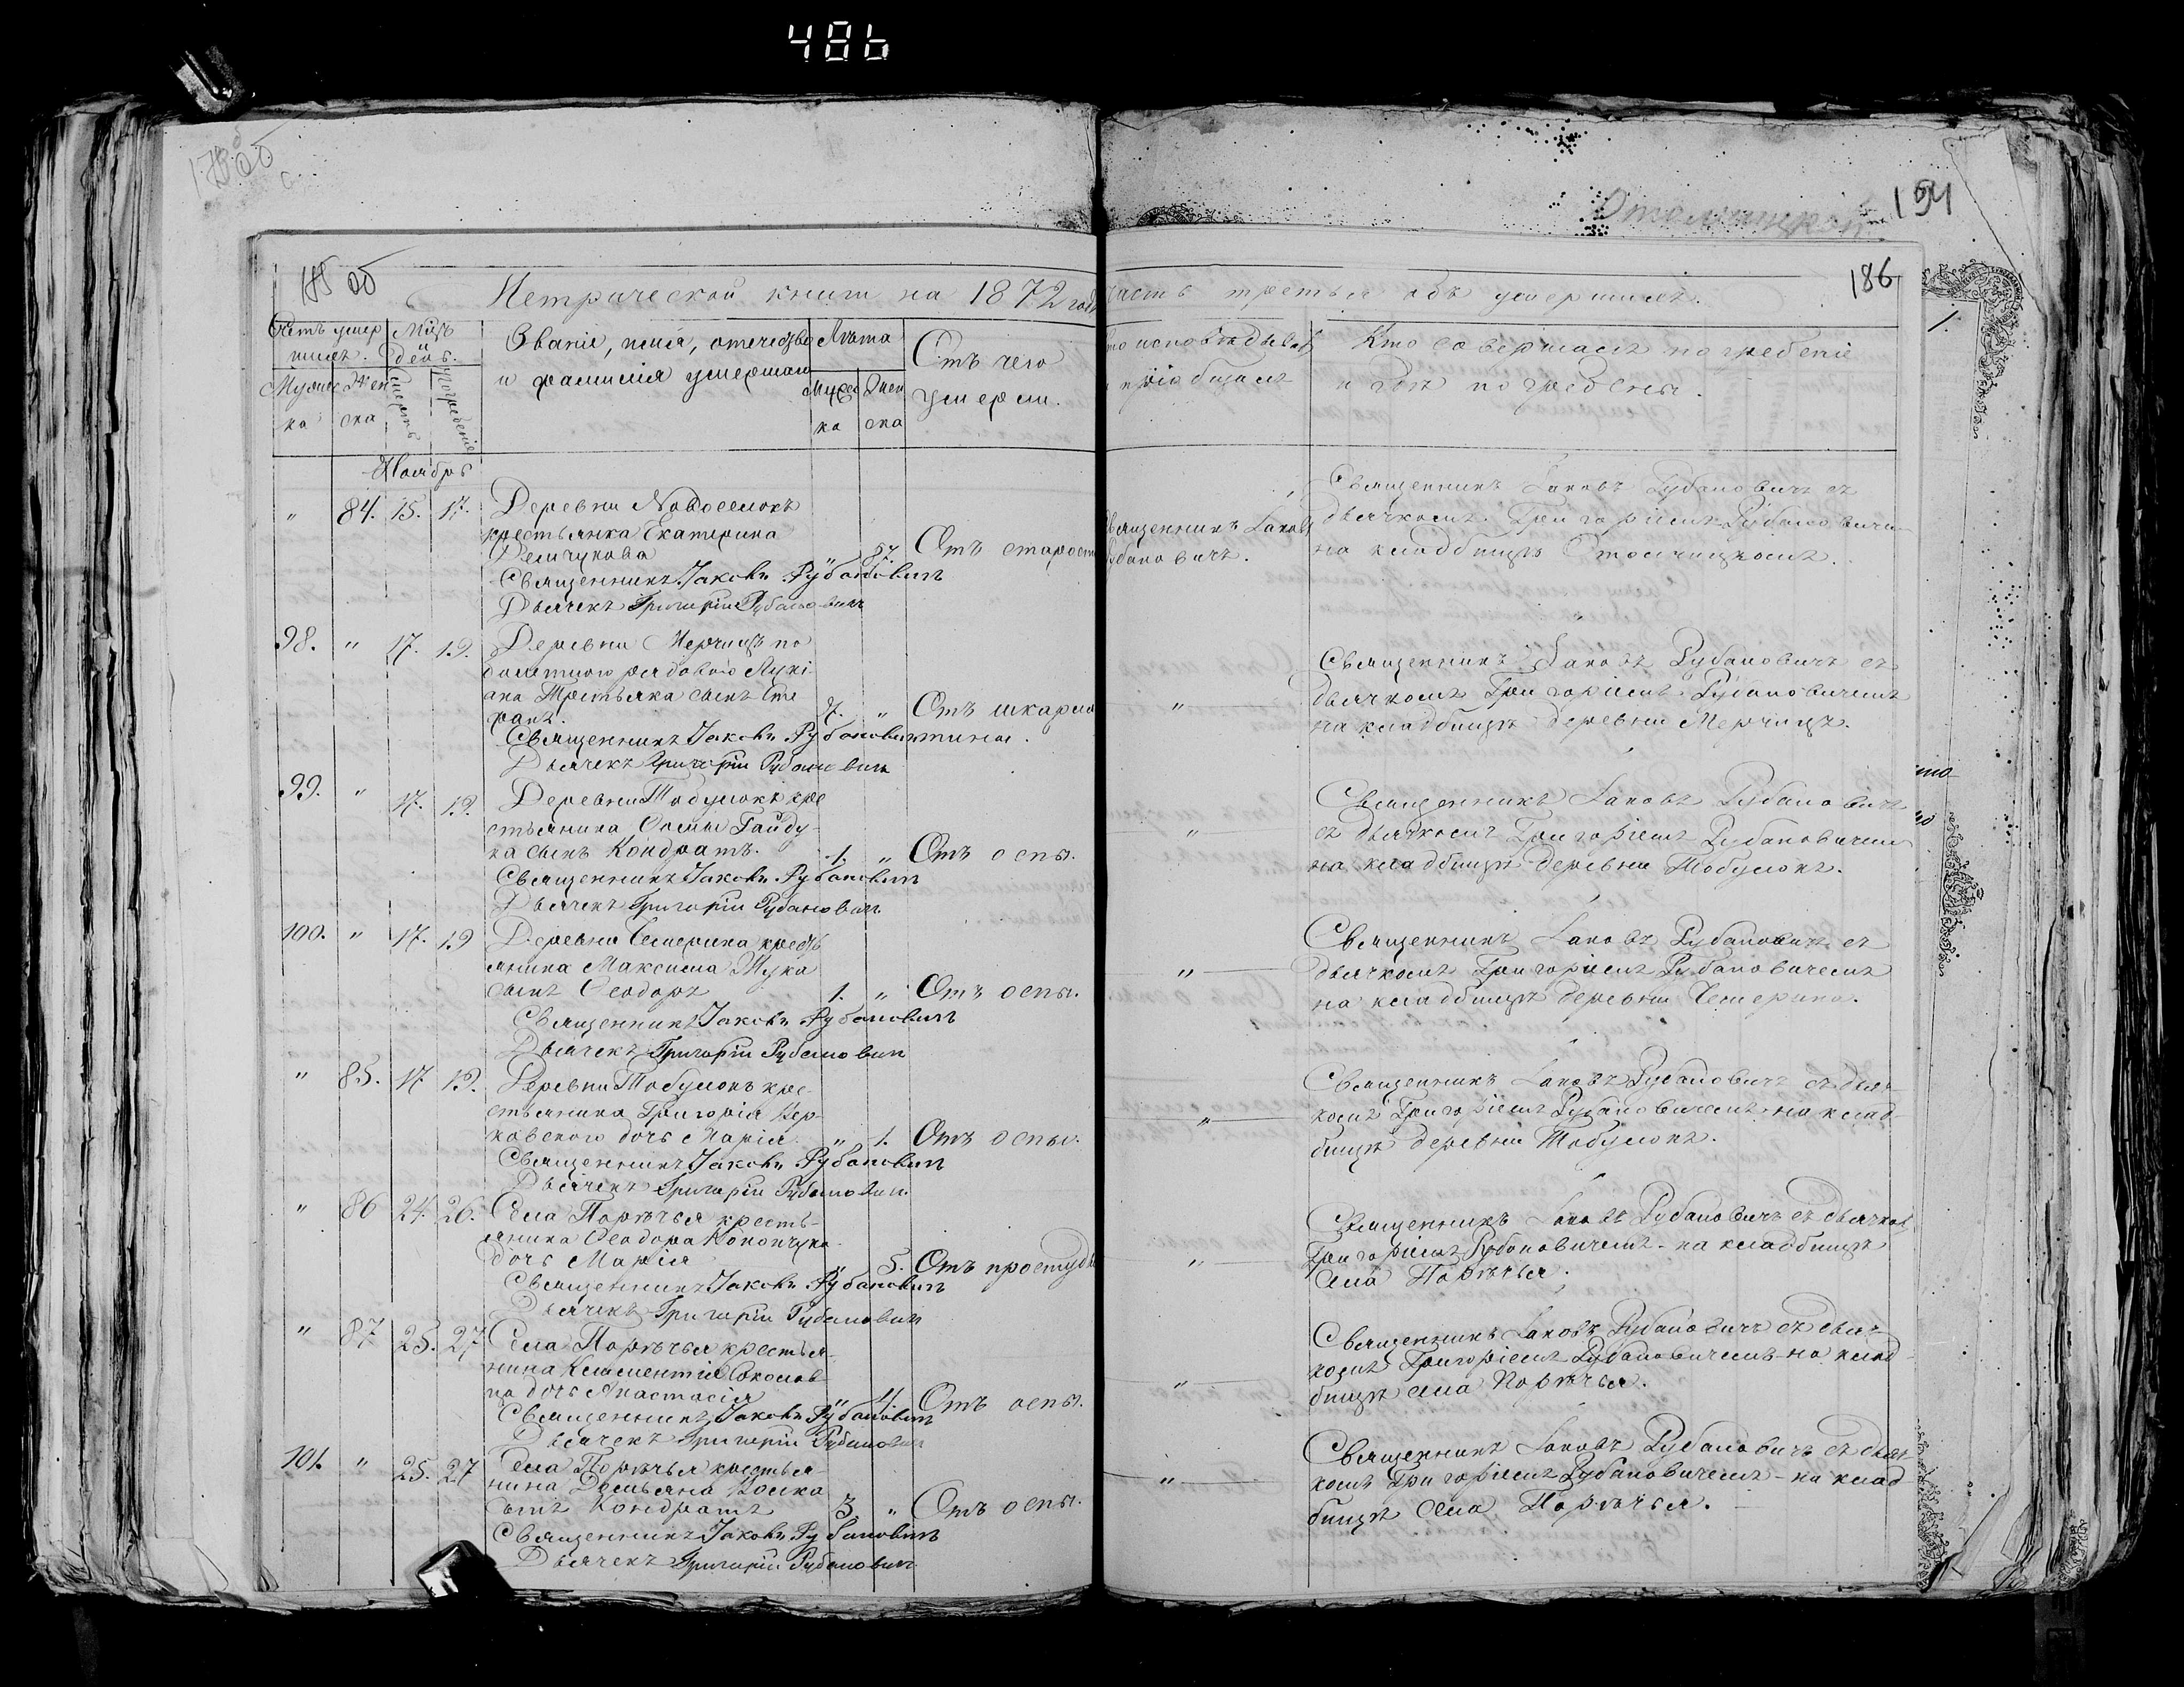 486
194
185 об
186
Метрической книги на 1872 годъ
часть третья объ умершихъ.
Счетъ умер
шихъ.
Мцъ
день.
Званіе, имя, отечество
и фамилія умершаго
Лѣта
Отъ чего
умерли.
исповѣдывалъ
и пріобщалъ
Кто совершалъ погребеніе
и гдѣ погребены.
Мужес
ка
Жен
ска
смерти
погребенія
Мужес
ка
Жен
ска
Ноябрь
" 84. 15. 17. Деревни Новоселокъ
крестьянка Екатерина
" 87. Отъ старости
Священникъ Іаковъ Рубановичъ
Дьячекъ Григорій Рубановичъ
Священникъ Іаковъ
Рубановичъ.
Священникъ Іаковъ Рубановичъ съ
дьячкомъ Григоріемъ Рубановичемъ
на кладбищѣ Отолчицкомъ.
98. " 17. 19. Деревни Мерчицъ по
билетного рядового Лукі
ана Третьяка сынъ Сте
фанъ. 7. " Отъ шкарла
тины.
Священникъ Іаковъ Рубановичъ
Дьячекъ Григорій Рубановичъ
" Священникъ Іаковъ Рубановичъ съ
дьячкомъ Григоріемъ Рубановичемъ
на кладбищѣ деревни Мерчицъ.
99. " 17. 19. Деревни Тобулокъ кре
стьянина Ѳомы Гайду-
ка сынъ Кондратъ. 1. " Отъ оспы.
Священникъ Іаковъ Рубановичъ
Дьячекъ Григорій Рубановичъ
" Священникъ Іаковъ Рубановичъ
съ дьячкомъ Григоріемъ Рубановичемъ
на кладбищѣ деревни Тобулокъ.
100. " 17. 19 Деревни Чемерина кресть
янина Максима Жука
сынъ Ѳеодоръ 1. " Отъ оспы.
Священникъ Іаковъ Рубановичъ
Дьячекъ Григорій Рубановичъ
" Священникъ Іаковъ Рубановичъ съ
дьячкомъ Григоріемъ Рубановичемъ
на кладбищѣ деревни Чемерина.
" 85. 17 19. Деревни Тобулокъ кре-
стьянина Григорія Вер-
ковского дочь Марія " 1. Отъ оспы.
Священникъ Іаковъ Рубановичъ
Дьячекъ Григорій Рубановичъ
" Священникъ Іаковъ Рубановичъ съ дьяч
комъ Григоріемъ Рубановичемъ на клад
бищѣ деревни Тобулокъ.
" 86 24. 26. Села Порѣчья кресть-
янина Ѳеодора Конончука
дочь Марія " 5. Отъ простуды
Священникъ Іаковъ Рубановичъ
Дьячекъ Григорій Рубановичъ
" Священникъ Іаковъ Рубановичъ съ дьячком
Григоріемъ Рубановичемъ - на кладбищѣ
села Порѣчья.
" 87 25. 27 Села Порѣчья крестья-
нина Климентія
дочь Анастасія " 4. Отъ оспы.
Священникъ Іаковъ Рубановичъ
Дьячекъ Григорій Рубановичъ
" Священникъ Іаковъ Рубановичъ съ дьяч-
комъ Григоріемъ Рубановичемъ - на клад-
бищѣ села Порѣчья.
101. " 25. 27 Села Порѣчья крестья-
нина Демьяна
сынъ Кондратъ 3. " Отъ оспы.
Священникъ Іаковъ Рубановичъ
Дьячекъ Григорій Рубановичъ
" Священникъ Іаковъ Рубановичъ съ дьяч-
комъ Григоріемъ Рубановичемъ - на клад
бищѣ села Порѣчья.